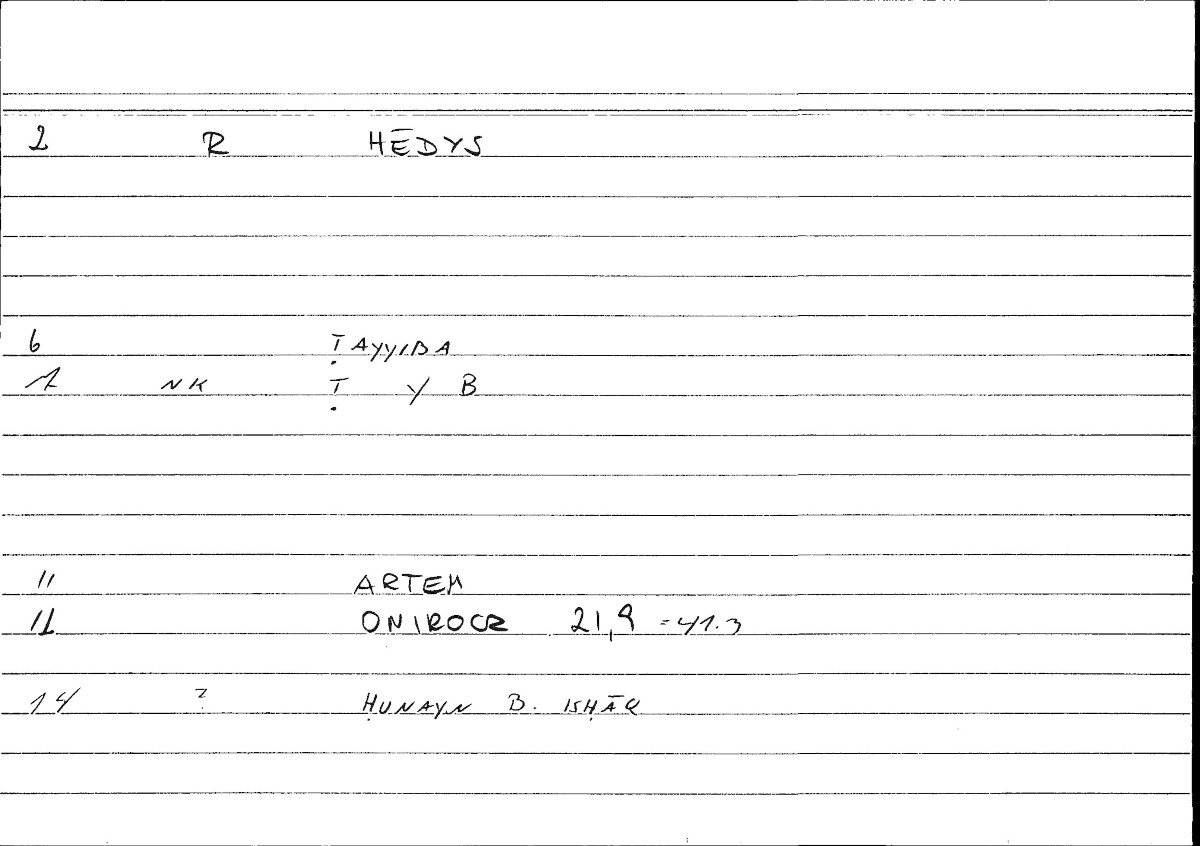 2 R HĒDYS
6 ṬAYYIBA
7 NK Ṭ Y B
11 ARTEM
12 ONIROCR 21,9 =41.3
14 ? ḤUNAYN B. ISḤĀQ